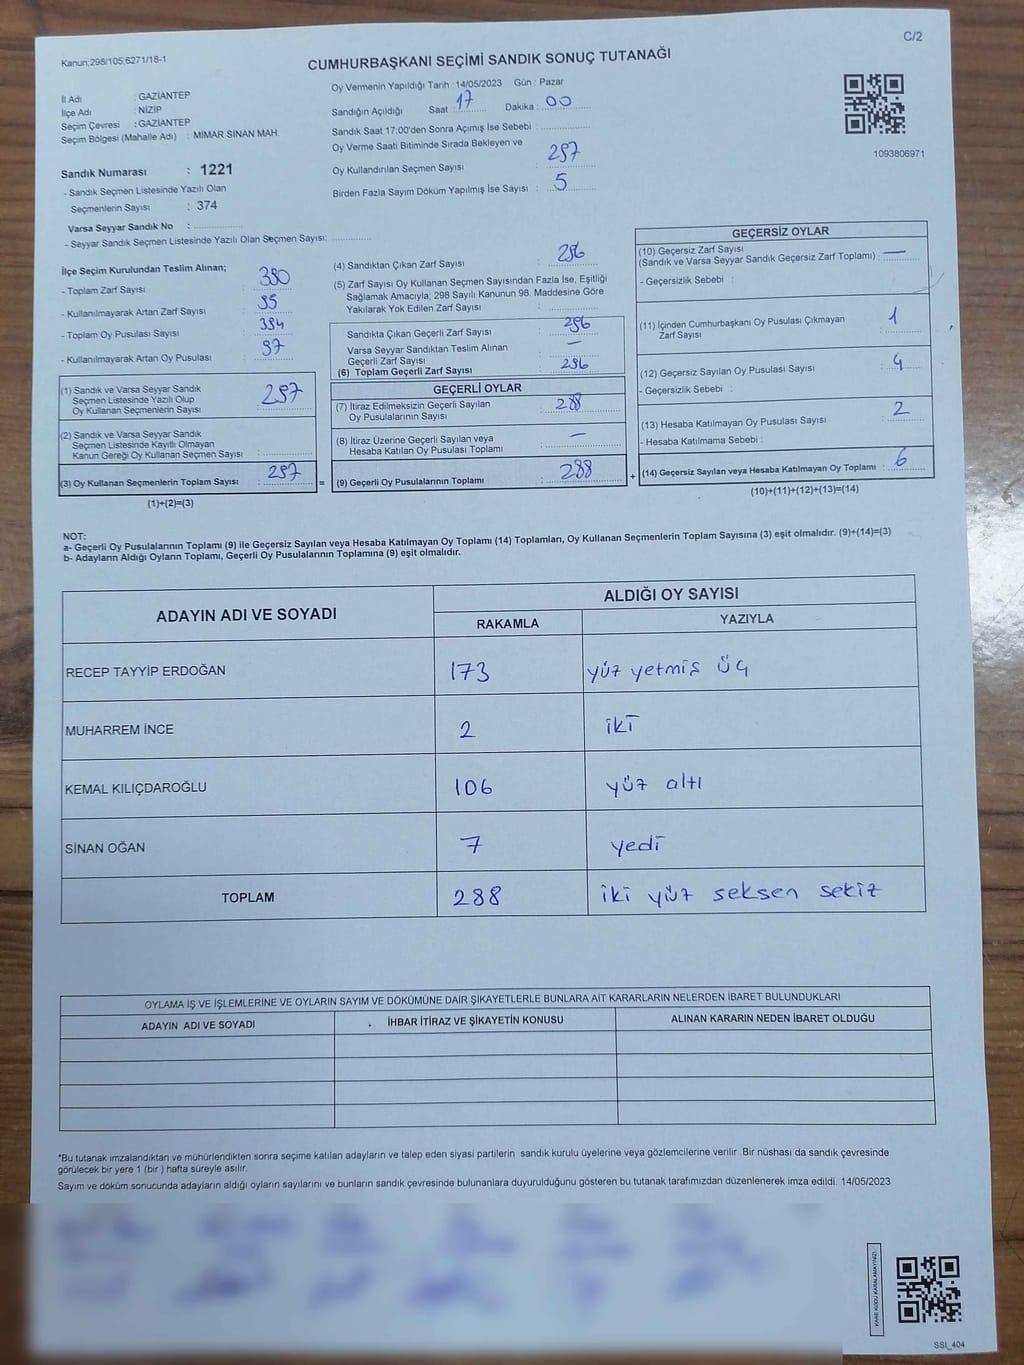 C/2
Kanun:298/105;6271/18-1
CUMHURBAŞKANI SEÇİMİ SANDIK SONUÇ TUTANAĞI
İl Adı : GAZİANTEP
İlçe Adı : NİZİP
Seçim Çevresi : GAZİANTEP
Seçim Bölgesi (Mahalle Adı) : MİMAR SİNAN MAH.
Sandık Numarası : 1221
- Sandık Seçmen Listesinde Yazılı Olan
Seçmenlerin Sayısı : 374
Varsa Seyyar Sandık No :
- Seyyar Sandık Seçmen Listesinde Yazılı Olan Seçmen Sayısı:
Oy Vermenin Yapıldığı Tarih : 14/05/2023 Gün : Pazar
Sandığın Açıldığı Saat : 17 Dakika : 00
Sandık Saat 17:00'den Sonra Açımış İse Sebebi :
Oy Verme Saati Bitiminde Sırada Bekleyen ve
Oy Kullandırılan Seçmen Sayısı : 297
Birden Fazla Sayım Döküm Yapılmış İse Sayısı : 5
1093806971
İlçe Seçim Kurulundan Teslim Alınan;
- Toplam Zarf Sayısı : 380
- Kullanılmayarak Artan Zarf Sayısı : 95
- Toplam Oy Pusulası Sayısı : 394
- Kullanılmayarak Artan Oy Pusulası : 97
(1) Sandık ve Varsa Seyyar Sandık
Seçmen Listesinde Yazılı Olup
Oy Kullanan Seçmenlerin Sayısı : 297
(2) Sandık ve Varsa Seyyar Sandık
Seçmen Listesinde Kayıtlı Olmayan
Kanun Gereği Oy Kullanan Seçmen Sayısı :
(3) Oy Kullanan Seçmenlerin Toplam Sayısı : 297
(1)+(2)=(3)
(4) Sandıktan Çıkan Zarf Sayısı : 296
(5) Zarf Sayısı Oy Kullanan Seçmen Sayısından Fazla İse, Eşitliği
Sağlamak Amacıyla; 298 Sayılı Kanunun 98. Maddesine Göre
Yakılarak Yok Edilen Zarf Sayısı :
Sandıkta Çıkan Geçerli Zarf Sayısı : 296
Varsa Seyyar Sandıktan Teslim Alınan
Geçerli Zarf Sayısı : —
(6) Toplam Geçerli Zarf Sayısı : 296
GEÇERLİ OYLAR
(7) İtiraz Edilmeksizin Geçerli Sayılan
Oy Pusulalarının Sayısı : 288
(8) İtiraz Üzerine Geçerli Sayılan veya
Hesaba Katılan Oy Pusulası Toplamı : —
= (9) Geçerli Oy Pusulalarının Toplamı : 288
GEÇERSİZ OYLAR
(10) Geçersiz Zarf Sayısı
(Sandık ve Varsa Seyyar Sandık Geçersiz Zarf Toplamı) : —
- Geçersizlik Sebebi :
(11) İçinden Cumhurbaşkanı Oy Pusulası Çıkmayan
Zarf Sayısı : 1
(12) Geçersiz Sayılan Oy Pusulası Sayısı : 4
- Geçersizlik Sebebi :
(13) Hesaba Katılmayan Oy Pusulası Sayısı : 2
- Hesaba Katılmama Sebebi :
+ (14) Geçersiz Sayılan veya Hesaba Katılmayan Oy Toplamı : 6
(10)+(11)+(12)+(13)=(14)
NOT:
a- Geçerli Oy Pusulalarının Toplamı (9) ile Geçersiz Sayılan veya Hesaba Katılmayan Oy Toplamı (14) Toplamları, Oy Kullanan Seçmenlerin Toplam Sayısına (3) eşit olmalıdır. (9)+(14)=(3)
b- Adayların Aldığı Oyların Toplamı, Geçerli Oy Pusulalarının Toplamına (9) eşit olmalıdır.
ADAYIN ADI VE SOYADI ALDIĞI OY SAYISI
RAKAMLA YAZIYLA
RECEP TAYYİP ERDOĞAN 173 yüz yetmiş üç
MUHARREM İNCE 2 iki
KEMAL KILIÇDAROĞLU 106 yüz altı
SİNAN OĞAN 7 yedi
TOPLAM 288 iki yüz seksen sekiz
OYLAMA İŞ VE İŞLEMLERİNE VE OYLARIN SAYIM VE DÖKÜMÜNE DAİR ŞİKAYETLERLE BUNLARA AİT KARARLARIN NELERDEN İBARET BULUNDUKLARI
ADAYIN ADI VE SOYADI İHBAR İTİRAZ VE ŞİKAYETİN KONUSU ALINAN KARARIN NEDEN İBARET OLDUĞU
*Bu tutanak imzalandıktan ve mühürlendikten sonra seçime katılan adayların ve talep eden siyasi partilerin sandık kurulu üyelerine veya gözlemcilerine verilir .Bir nüshası da sandık çevresinde
görülecek bir yere 1 (bir ) hafta süreyle asılır.
Sayım ve döküm sonucunda adayların aldığı oyların sayılarını ve bunların sandık çevresinde bulunanlara duyurulduğunu gösteren bu tutanak tarafımızdan düzenlenerek imza edildi. 14/05/2023
KARE KODU KARALAMAYINIZ!
SSI_404